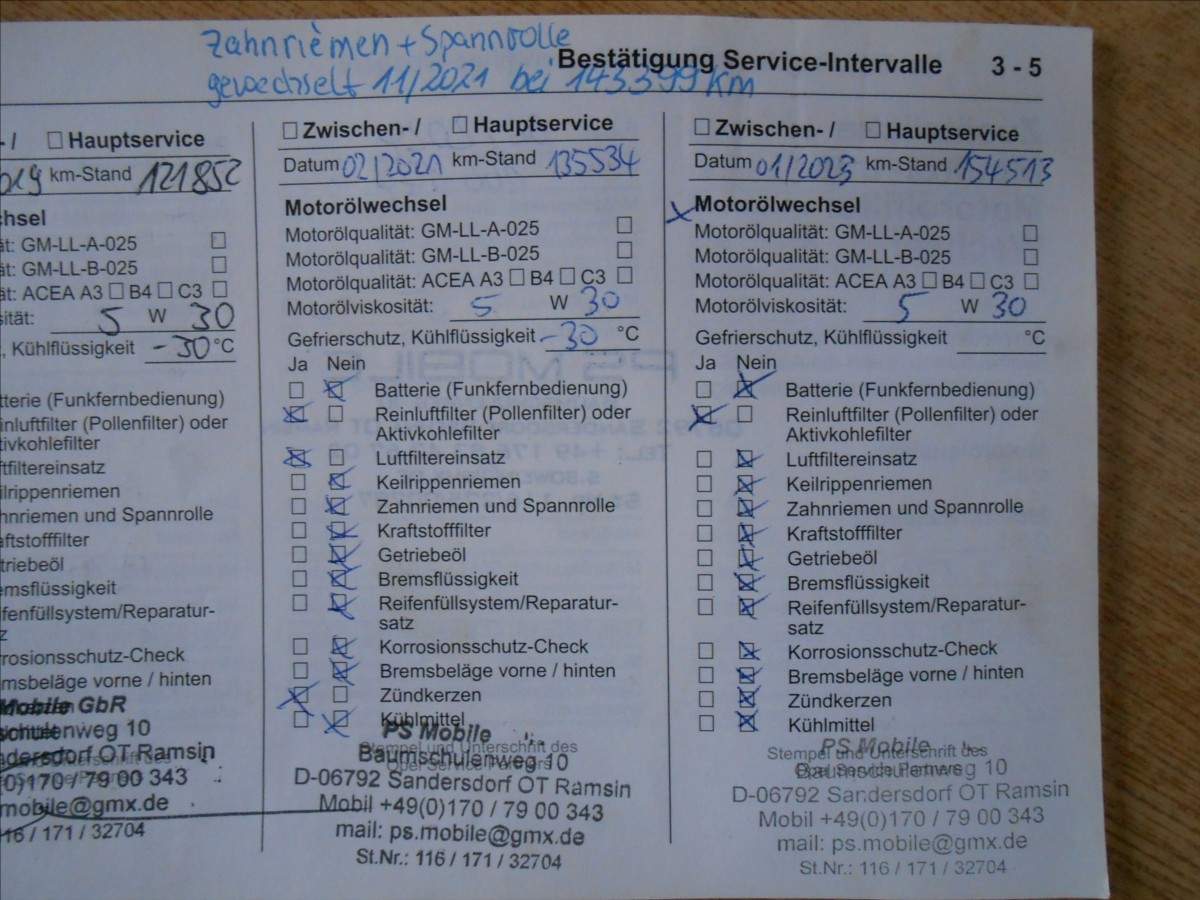 Zahnriemen + Spannrolle
gewechselt 11/2021 bei 143399 km
Bestätigung Service-Intervalle 3 - 5
- / ☐ Hauptservice
019 km-Stand 121852
chsel
ät: GM-LL-A-025 ☐
ät: GM-LL-B-025 ☐
ät: ACEA A3 ☐ B4 ☐ C3 ☐
sität: 5 W 30
, Kühlflüssigkeit -30 °C
tterie (Funkfernbedienung)
inluftfilter (Pollenfilter) oder
ktivkohlefilter
ftfiltereinsatz
eilrippenriemen
hnriemen und Spannrolle
aftstofffilter
triebeöl
emsflüssigkeit
ifenfüllsystem/Reparatur-
z
rrosionsschutz-Check
msbeläge vorne / hinten
Mobile GbR
schulenweg 10
ndersdorf OT Ramsin
0)170 / 79 00 343
mobile@gmx.de
116 / 171 / 32704
☐ Zwischen- / ☐ Hauptservice
Datum 02/2021 km-Stand 135534
Motorölwechsel
Motorölqualität: GM-LL-A-025 ☐
Motorölqualität: GM-LL-B-025 ☐
Motorölqualität: ACEA A3 ☐ B4 ☐ C3 ☐
Motorölviskosität: 5 W 30
Gefrierschutz, Kühlflüssigkeit -30 °C
Ja Nein
☐ ☒ Batterie (Funkfernbedienung)
☒ ☐ Reinluftfilter (Pollenfilter) oder
Aktivkohlefilter
☒ ☐ Luftfiltereinsatz
☐ ☒ Keilrippenriemen
☐ ☒ Zahnriemen und Spannrolle
☐ ☒ Kraftstofffilter
☐ ☒ Getriebeöl
☐ ☒ Bremsflüssigkeit
☐ ☒ Reifenfüllsystem/Reparatur-
satz
☐ ☒ Korrosionsschutz-Check
☐ ☒ Bremsbeläge vorne / hinten
☒ ☐ Zündkerzen
☐ ☒ Kühlmittel
PS Mobile
Stempel und Unterschrift des
Opel Service Partners
Baumschulenweg 10
D-06792 Sandersdorf OT Ramsin
Mobil +49(0)170 / 79 00 343
mail: ps.mobile@gmx.de
St.Nr.: 116 / 171 / 32704
☐ Zwischen- / ☐ Hauptservice
Datum 01/2023 km-Stand 154513
x Motorölwechsel
Motorölqualität: GM-LL-A-025 ☐
Motorölqualität: GM-LL-B-025 ☐
Motorölqualität: ACEA A3 ☐ B4 ☐ C3 ☐
Motorölviskosität: 5 W 30
Gefrierschutz, Kühlflüssigkeit °C
Ja Nein
☐ ☒ Batterie (Funkfernbedienung)
☒ ☐ Reinluftfilter (Pollenfilter) oder
Aktivkohlefilter
☐ ☒ Luftfiltereinsatz
☐ ☒ Keilrippenriemen
☐ ☒ Zahnriemen und Spannrolle
☐ ☒ Kraftstofffilter
☐ ☒ Getriebeöl
☐ ☒ Bremsflüssigkeit
☐ ☒ Reifenfüllsystem/Reparatur-
satz
☐ ☒ Korrosionsschutz-Check
☐ ☒ Bremsbeläge vorne / hinten
☐ ☒ Zündkerzen
☐ ☒ Kühlmittel
PS Mobile
Stempel und Unterschrift des
Opel Service Partners
Baumschulenweg 10
D-06792 Sandersdorf OT Ramsin
Mobil +49(0)170 / 79 00 343
mail: ps.mobile@gmx.de
St.Nr.: 116 / 171 / 32704